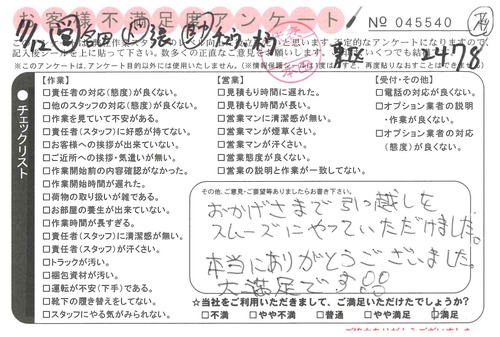 お客様不満足度アンケート
No 045540
2478
※このアンケートは、アンケート目的以外には使用いたしません。
チェックリスト
【作業】
□責任者の対応(態度)が良くない。
□他のスタッフの対応(態度)が良くない。
□作業を見ていて不安がある。
□責任者(スタッフ)に好感が持てない。
□お客様への挨拶が出来ていない。
□ご近所への挨拶・気遣いが無い。
□作業開始前の内容確認がなかった。
□作業開始時間が遅れた。
□荷物の取り扱いが雑である。
□お部屋の養生が出来ていない。
□作業時間が長すぎる。
□責任者(スタッフ)に清潔感が無い。
□責任者(スタッフ)が汗くさい。
□トラックが汚い。
□梱包資材が汚い。
□運転が安が(下手)である。
□靴下の履き替えをしてない。
□スタッフにやる気がみられない。
【営業】
□見積もり時間に遅れた。
□見積もり時間が長い。
□営業マンに清潔感が無い。
□営業マンが煙草くさい。
□営業マンが汗くさい。
□営業態度が良くない。
□営業の説明と作業が一致してない。
【受付・その他】
□電話の対応が良くない。
□オプション業者の説明
・作業が良くない。
□オプション業者の対応
(態度)が良くない。
その他、ご意見・ご要望等ありましたらお書き下さい。
おかげさまで引っ越しを
スムーズにやっていただけました。
本当にありがとうございました。
大満足です!!
☆当社をご利用いただきまして、ご満足いただけたでしょうか?
□不満 □やや不満 □普通 □やや満足 □満足